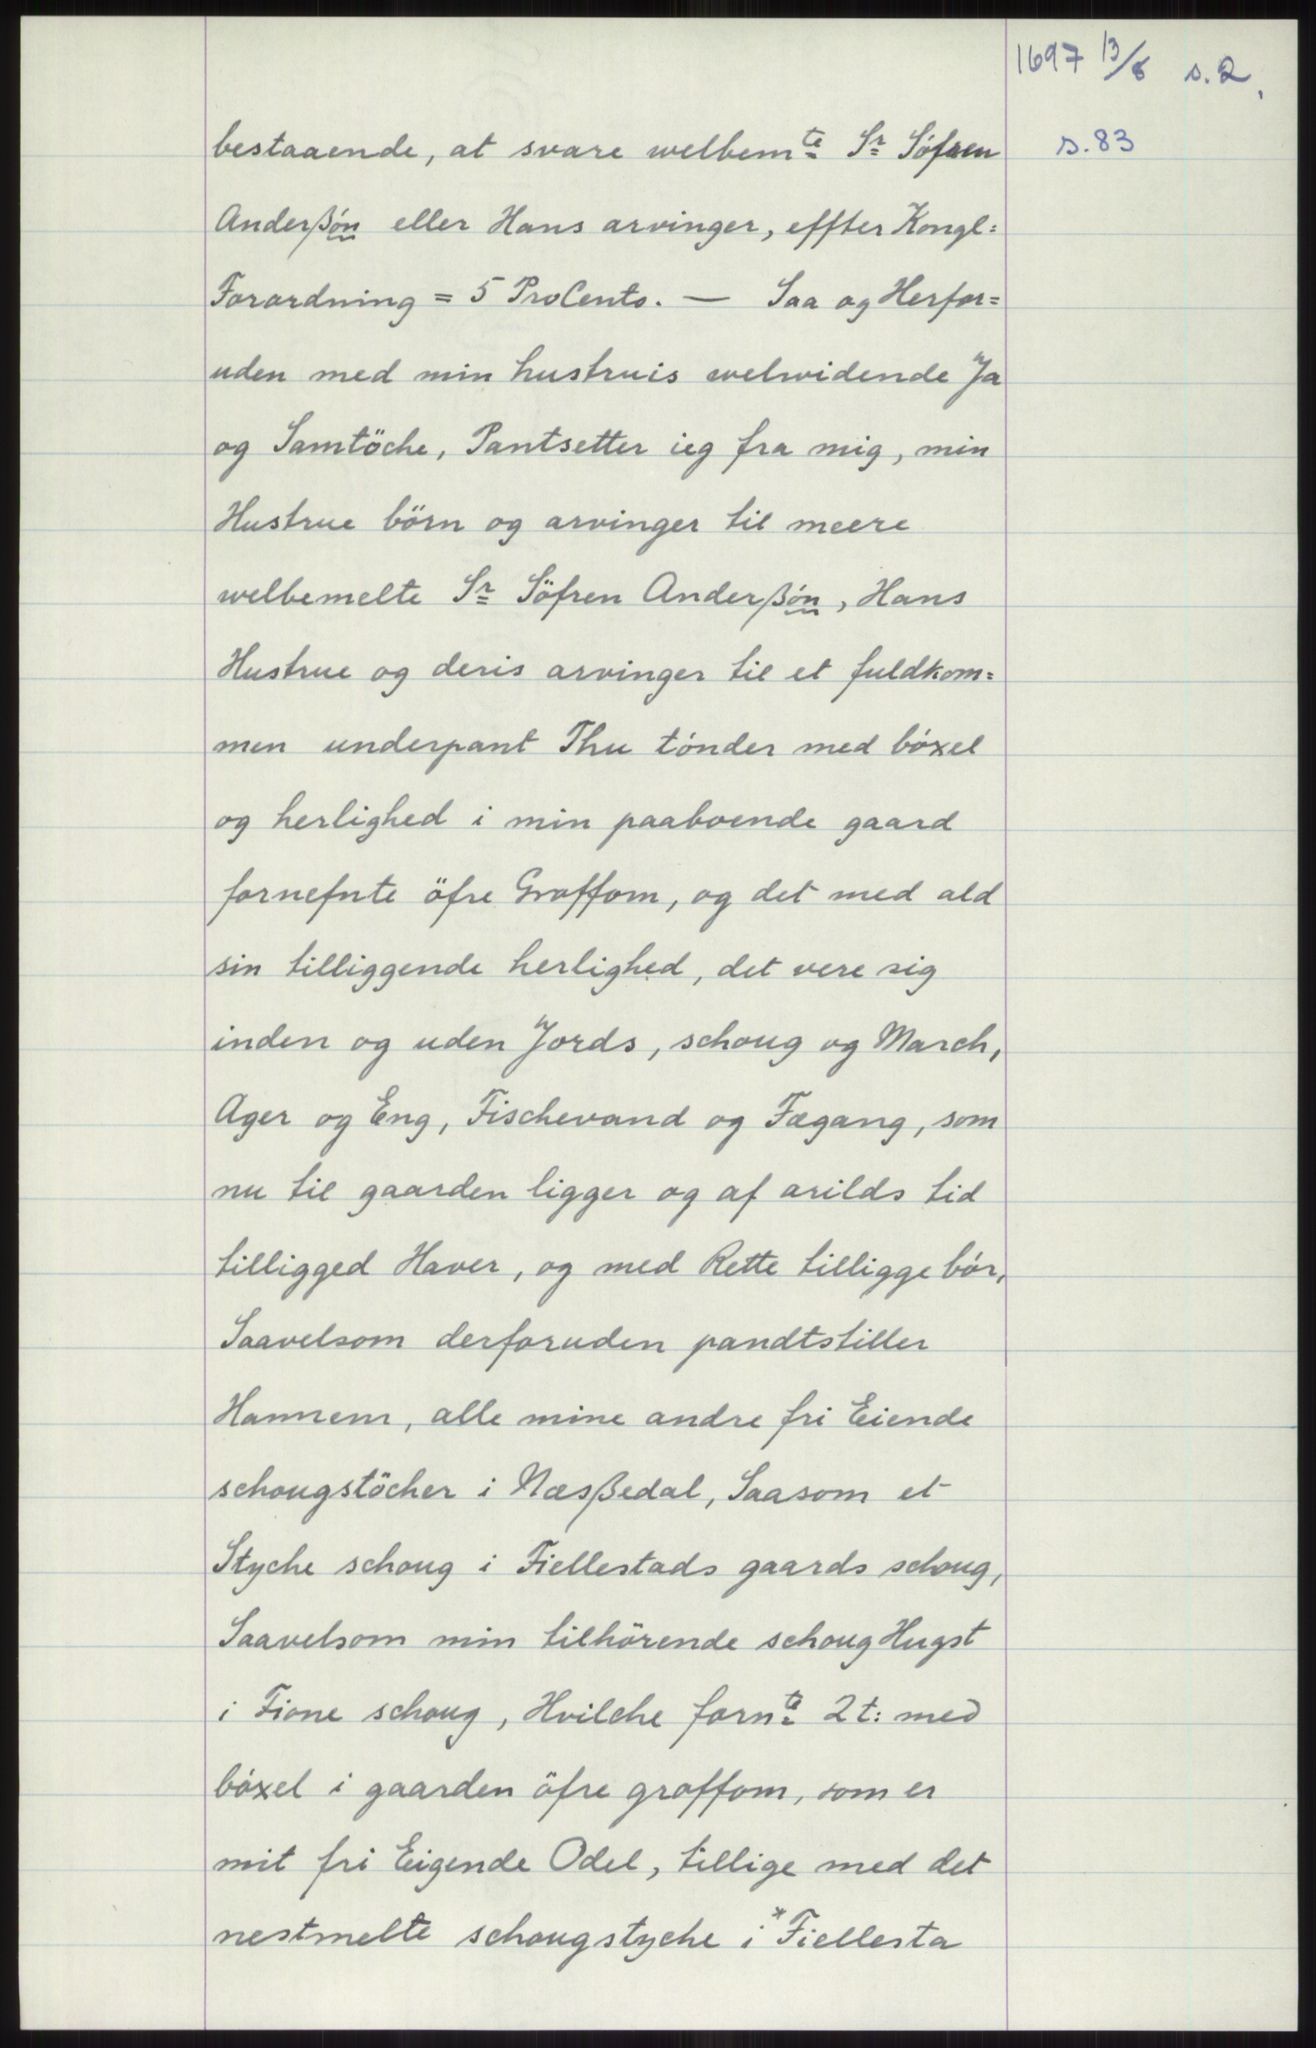 1697 13/8 s.2,
s.83
bestaaende, at svare welbemte Sr Söfren
Anderßón eller Hans arvinger, effter Kongl:
Forordning = 5 ProCento. — Saa og Herfor=
uden med min hustruis welvidende Ja
og Samtöche, Pantsetter ieg fra mig, min
Hustrue börn og arvinger til meere
welbemelte Sr Söfren Anderßón, Hans
Hustrue og deris arvinger til et fuldkom=
men underpant Thu tónder med bóxel
og herlighed i min paaboende gaard
fornefnte öfre Groffom, og det med ald
sin tilliggende herlighed, det vere sig
inden og uden Jords, schoug og March,
Ager og Eng, Fischevand og Fægang, som
nu til gaarden ligger og af arilds tid
tilligged Haver, og med Rette tilligge bór,
Saavelsom derforuden pandtstiller
Hannem, alle mine andre fri Eiende
schougstöcher i Næsßedal, Saasom et
Styche schoug i Fiellestads gaards schoug,
Saavelsom min tilhörende schoug Hugst
i Fione schoug, Hvilche fornte 2 t: med
bóxel i gaarden öfre groffom, som er
mit fri Eigende Odel, tillige med det
nestmelte schougstyche i *Fiellesta